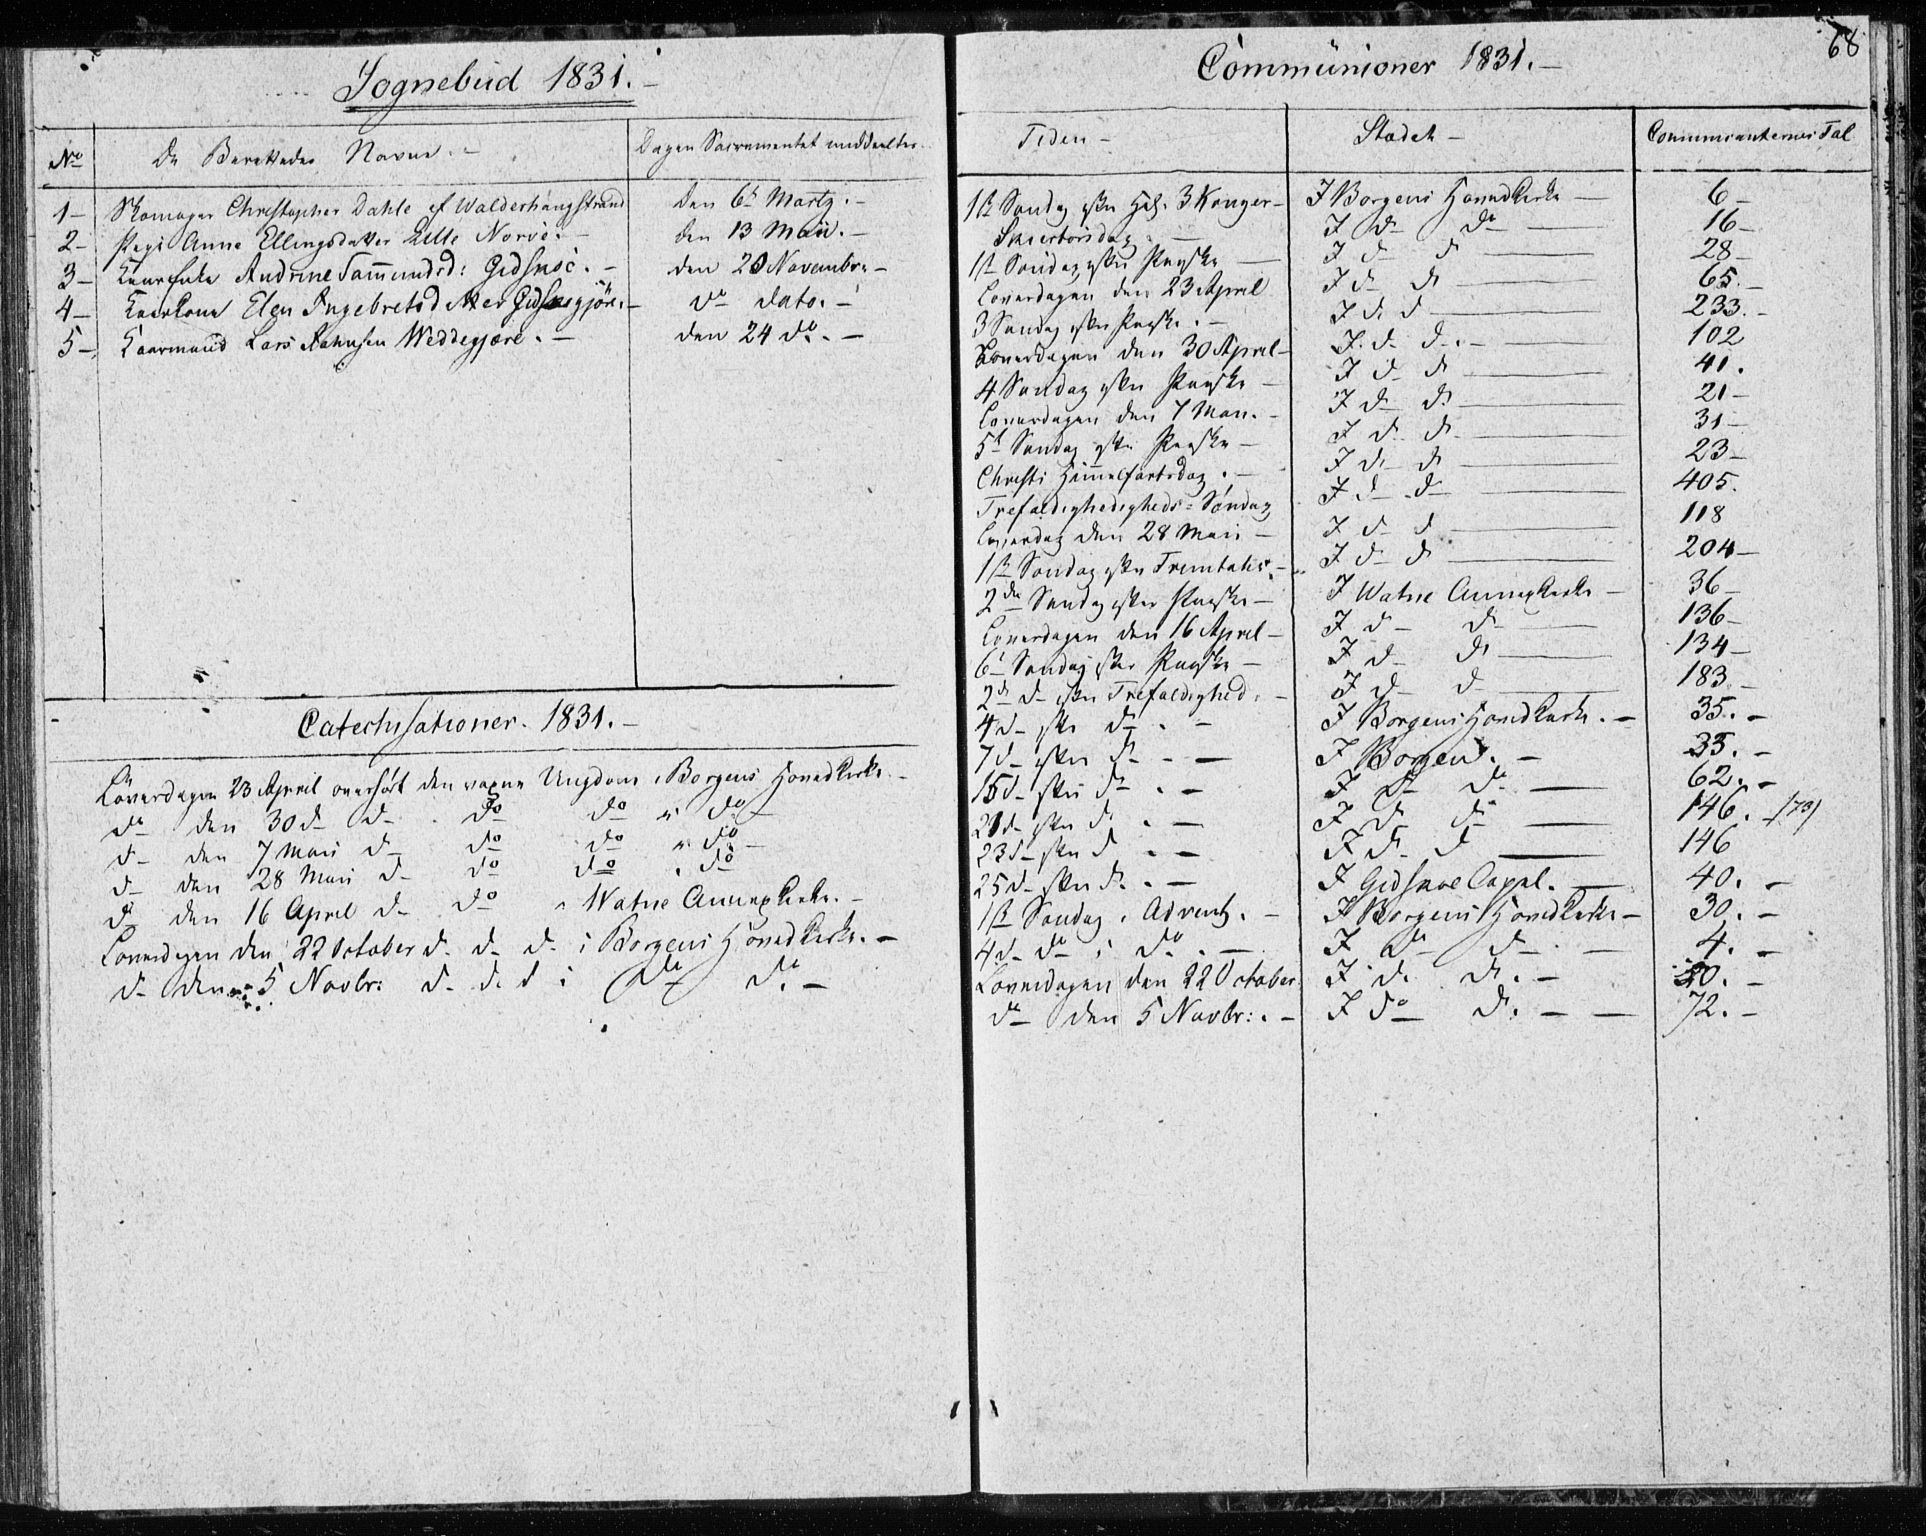 Sognebud 1831. –
No De Berettedes Navne. – Dagen Sacramentet meddeeltes.
1 – Skomager Christopher Dahle af Walderhaugstrand den 6te Martz. –
2 – Pige Anne Ellingsdatter Lille Norve. – den 13 Maii. –
3 – Andrine Sammundsd: Gidskoe. – den 20 Novembr. –
4 – Kaarkone Elen Ingebretsdatter Gidskegjöre. – do dato. –
5 – Kaarmand Lars Weddegjære. – den 24 do. –
Catechisationer. 1831. –
Löverdagen 23 April overhört den voxne Ungdom i Borgens Hovedkirke. –
do den 30 d – d – do do i do –
d – den 7 Maii d – do do i do –
d – den 28 Maii d – do do i do
do den 16 April d – do i Watne Annexkirke. –
Löverdagen den 22 October d. d. d. i Borgens Hovedkirke. –
d – den 5 Novbr: d. d. d i do do –
68
Communioner 1831. –
Tiden – Stædet – Communicanternes Tal
1ste Söndag efter Hel. 3 Konger – I Borgens Hovedkirke – 6 –
Skiertorsdag – I d – do – 16 –
1ste Söndag efter Paaske – I d – d – 28 –
Löverdagen den 23 April I d – d – 65. –
3 Söndag efter Paaske. – I d. d – 233. –
Löverdagen den 30 April – I. d – d. – 102
4 Söndag efter Paaske – I d – d – 41.
Löverdagen den 7 Maii. – I d – d. – 21 –
5te Söndag efter Paaske – I d – d – 31 –
Christi Himmelfartsdag. – I d – d – 23 –
Trefoldighedigheds = Söndag I d – d – 405.
Löverdag den 28 Maii – I d – d – 118
1ste Söndag efter Trinitatis. – I d – d – 204 –
2den Söndag efter Paaske – I Watne Annexkirke – 36 –
Löverdagen den 16 April – I d – d – 136 –
6te Söndag efter Paaske – I d – d – 134 –
2de d – efter Trefoldighed. – I d – d – 183. –
4 d – efter do. – I Borgens Hovedkirke. – 35. –
7 d – efter d – . – I Borgens. – 35. –
15 d – efter d – . – I do d. – 62. –
21 d – efter d. – I d. d – 146. /73/
23 d – efter d. – I d. d – 146
25 d – efter d. . – I Gidskoe Capel. – 40. –
1ste Söndag i Advent. – I Borgens Hovedkirke – 30. –
4 d – do i do. – I do d – 4. –
Löverdagen den 22 October I d. d. – 20. –
do den 5 Novbr:. – I do d. – 72. –